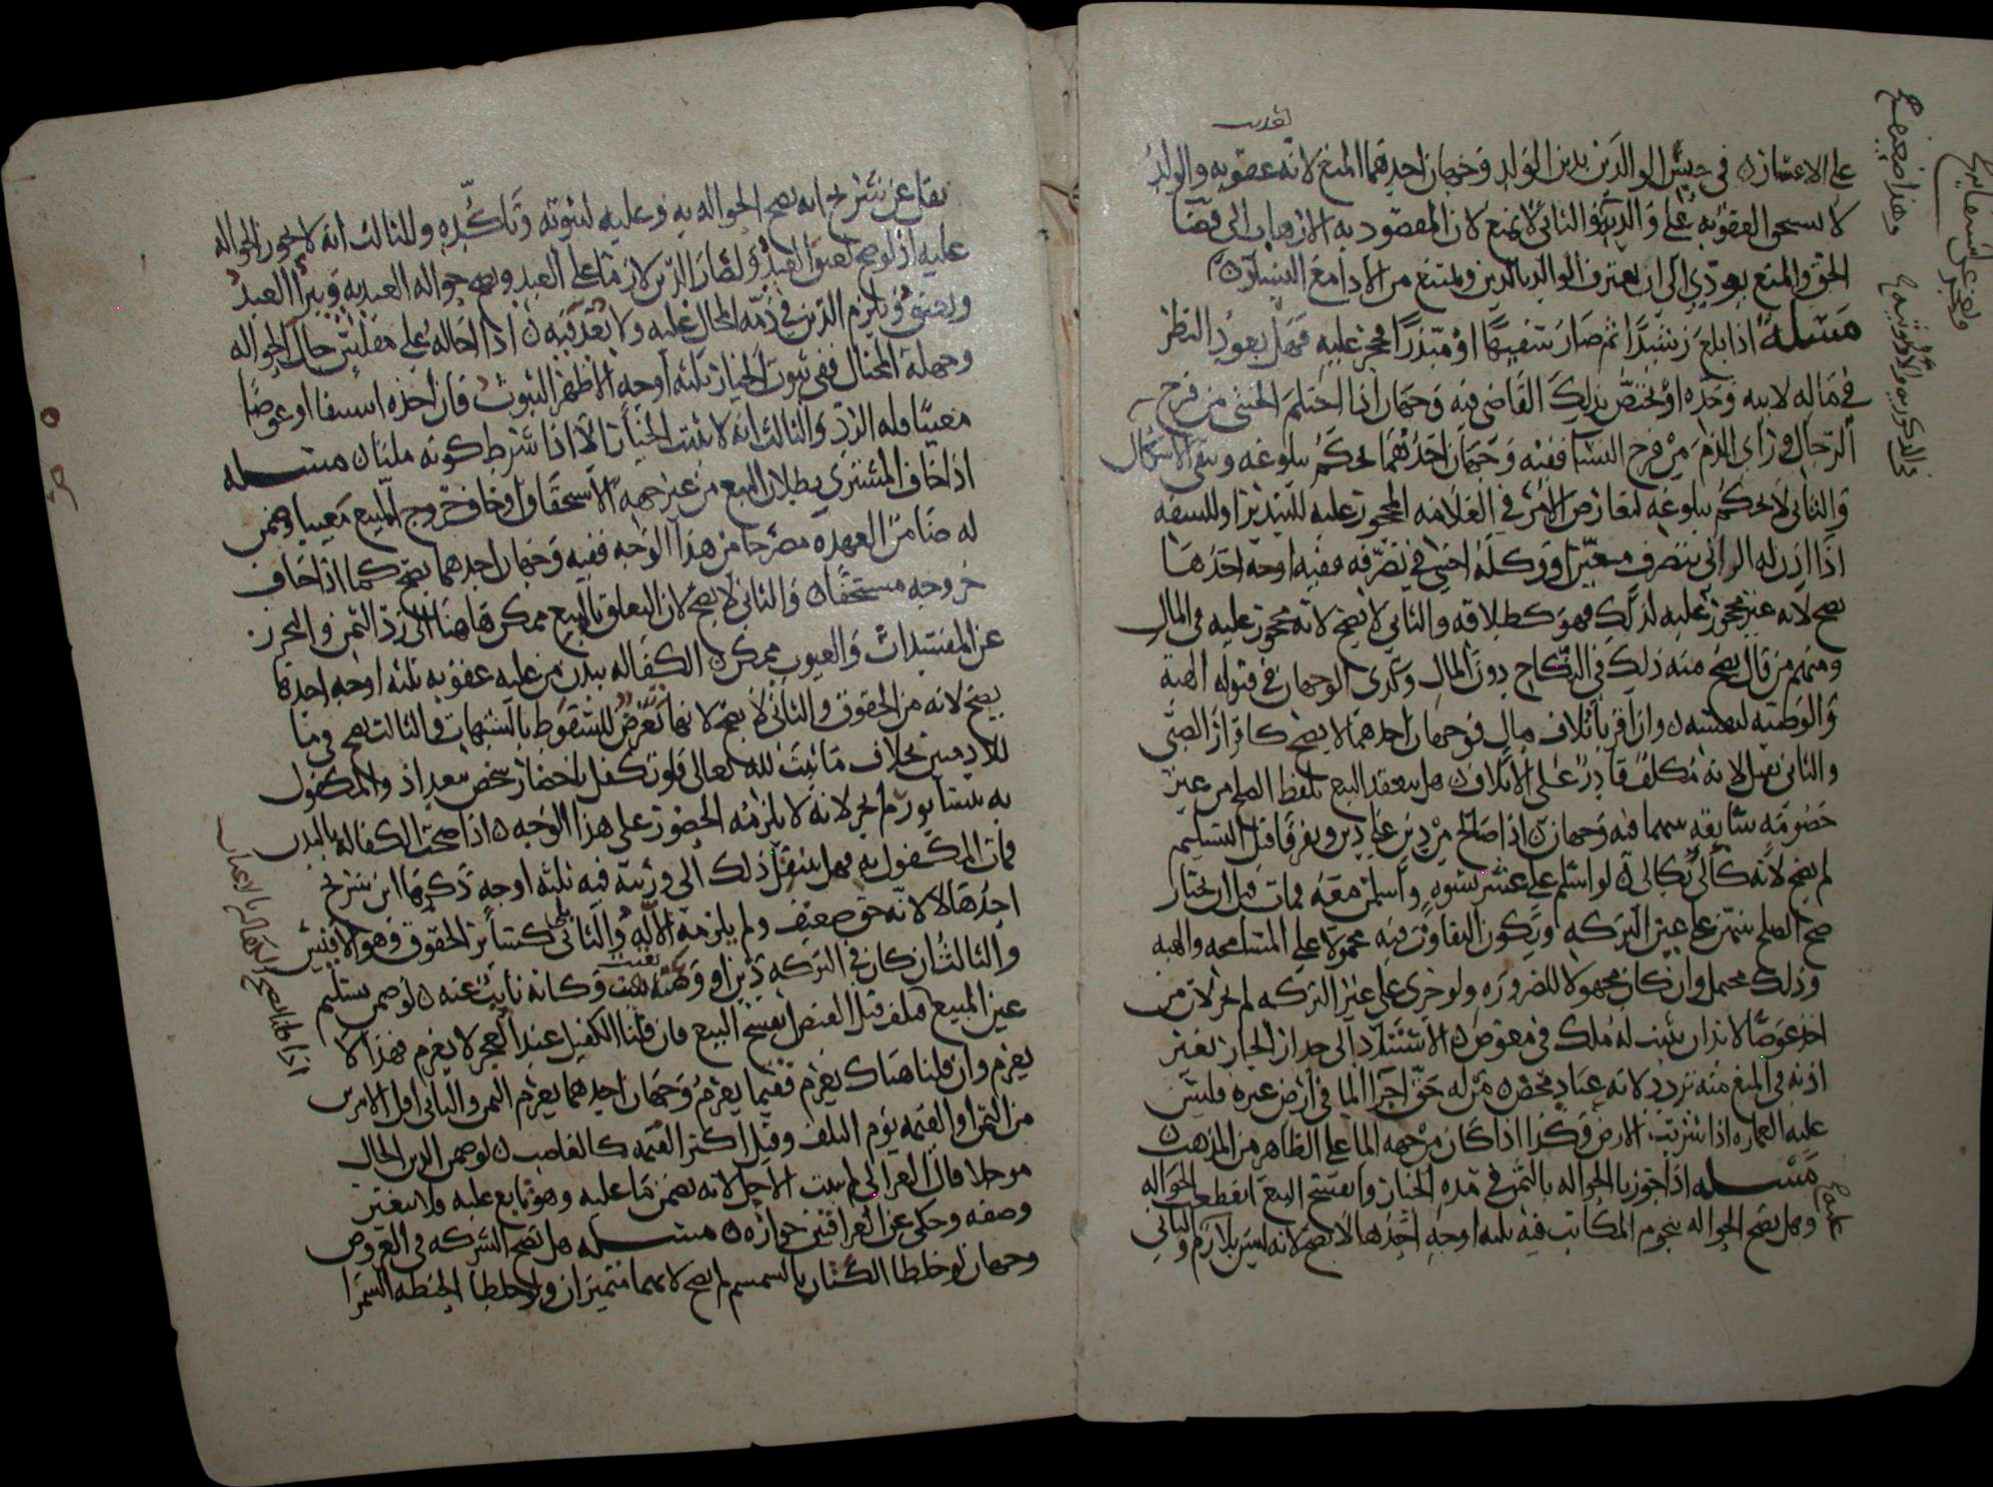 على الاعسار في حبس الوالدين بدين الولد وجهان احدهما المنع لانه عقوبة والولد
لا يستحق العقوبة على والديه والثاني لا يمنع لان المقصود به الارهاب الى قضا
الحق والمنع يودي الى ان يعترف الوالد بالدين ويمتنع من الادا مع اليسار
مسله اذا بلغ رشيدا ثم صار سفيها او مبذرا فحجر عليه فهل يعود النظر
في ماله لابيه وجده او يختص بذلك القاضي فيه وجهان اذا احتلم الخنثى من فرج
الرجال وراى الدم من فرج النسا ففيه وجهان احدهما يحكم ببلوغه وبقى الاشكال
والثاني لا يحكم ببلوغه لتعارض الامر في العلامه المحجور عليه للتبذير او للسفه
اذا اذن له الولي بتصرف معين او وكله اجنبي في تصرفه ففيه اوجه احدها
يصح لانه غير محجور عليه لذلك فهو كطلاقه والثاني لا يصح لانه محجور عليه في المال
ومنهم من قال يصح منه ذلك في النكاح دون المال وكذى الوجهان في قبوله الهبة
والوصية لنفسه واذا اقر باتلاف مال فوجهان احدهما لا يصح كاقرار الصبي
والثاني يقبل لانه مكلف قادر على الاتلاف هل ينعقد البيع بلفظ الصلح من غير
خصومه سابقه بينهما فيه وجهان اذا صالح من دين على دين وتفرقا قبل التسليم
لم يصح لانه كالئ بكالئ لو اسلم على عشر نسوه واسلمن معه فمات قبل ان يختار
صح الصلح منهن على عين التركه ويكون التفاوت فيه محمولا على المسامحه والهبه
وذلك محتمل وان كان مجهولا للضروره ولو جرى على غير التركه لم يجز لان من
اخذ عوضا لا بد ان يثبت له ملك في معوض الاستناد الى جدار الجار بغير
اذنه في المنع منه تردد لانه عناد محض من له حق اجرا الما في ارض غيره فليس
عليه العماره اذا شربت الارض وكذا اذا كان من جهة الما على الظاهر من المذهب
مسله اذا جوزنا الحواله بالثمن في مدة الخيار وانفسخ البيع انقطعت الحواله
وهل تصح الحواله بنجوم المكاتب فيه ثلثه اوجه احدها لا تصح لانه ليس بلازم والثاني
نقل عن ابن سريج انه يصح الحواله به وعليه لثبوته وتاكده والثالث انه لا يجوز الحواله
عليه اذ لو صح لعتق العبد ولصار الدين لازما على العبد ويصح حواله العبد به ويبرا العبد
ويعتق ويلزم الدين في ذمة المحال عليه ولا بعد فيه اذا احاله على مفلس حال الحواله
وجهله المحتال ففي ثبوت الخيار ثلثه اوجه الاظهر الثبوت فان اخذه استيفا او عوضا
معيبا فله الرد والثالث انه لا يثبت الخيار الا اذا شرط كونه مليا مسله
اذا خاف المشتري بطلان البيع من غير جهة الاستحقاق او خاف خروج المبيع معيبا وضمن
له ضامن العهده مصرحا من هذا الوجه ففيه وجهان احدهما يصح كما اذا خاف
خروجه مستحقا والثاني لا يصح لان التعلق بالمبيع ممكن هاهنا الى رد الثمن والتحرز
عن المفسدات والعيوب ممكن الكفاله ببدن من عليه عقوبه ثلثه اوجه احدها
يصح لانه من الحقوق والثاني لا يصح لانها تعرض للسقوط بالشبهات والثالث يصح في ما
للادميين بخلاف ما يثبت لله تعالى فلو تكفل باحضار شخص ببغداذ والمكفول
به بنيسابور لم يجز لانه لا يلزمه الحضور على هذا الوجه اذا صحت الكفاله بالبدن
فمات المكفول به فهل ينتقل ذلك الى ورثته فيه ثلثه اوجه ذكرها ابن سريج
احدها لا لانه حق ضعيف ولم يلزمه الا له والثاني كسائر الحقوق وهو الاقيس
والثالث ان كان في التركه دين او وكانه نايب عنه لو ضمن تسليم
عين المبيع فتلف قبل القبض انفسخ البيع فان قلنا الكفيل عند العجز لا يغرم فهذا لا
يغرم وان قلنا هناك يغرم ففيما يغرم وجهان احدهما يغرم الثمن والثاني اقل الامرين
من الثمن او القيمه يوم التلف وقيل اكثر القيمه كالغاصب لو ضمن الدين الحال
موجلا قال الغزالي لم يثبت الاجل لانه يضمن ما عليه وهو تابع عليه ولا يتغير
وصفه وحكى عن العراقيين جوازه مسله هل تصح الشركه في العروض
وجهان لو خلطا الكتان بالسمسم لم يصح لانهما متميزان ولو خلطا الحنطه السمرا